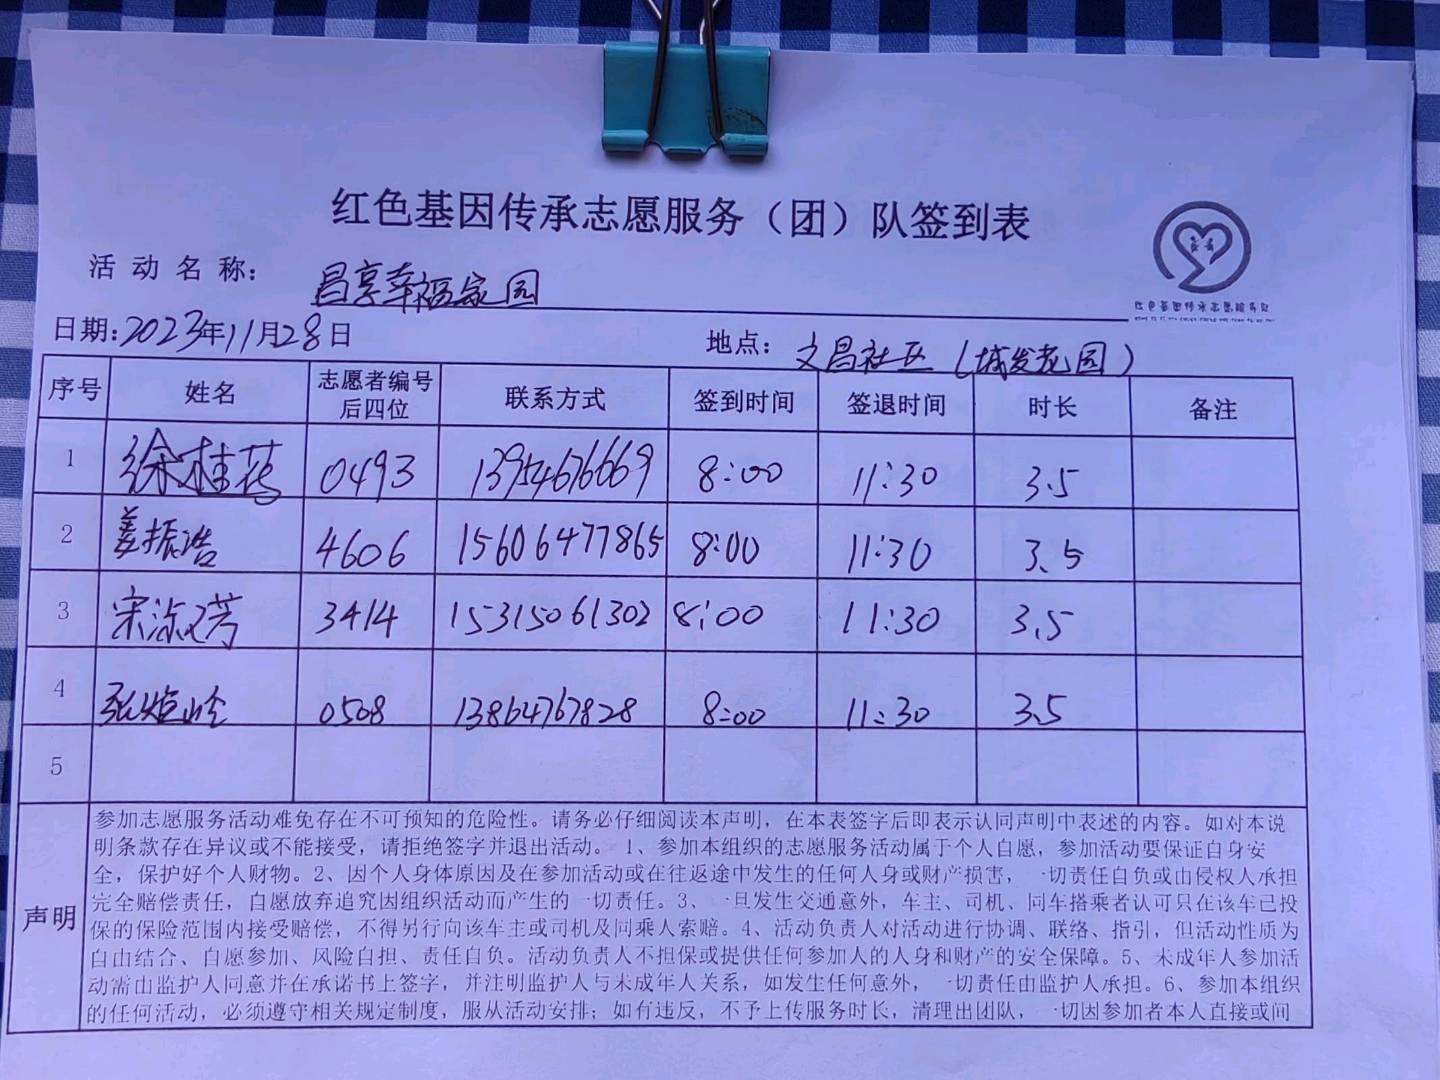 红色基因传承志愿服务（团）队签到表
活动名称： 昌享幸福家园
红色基因传承志愿服务队
日期：2023年11月28日 地点： 文昌社区（城发花园）
序号 姓名 志愿者编号后四位 联系方式 签到时间 签退时间 时长 备注
1 徐桂芬 0493 13954676669 8:00 11:30 3.5
2 姜振浩 4606 15606477865 8:00 11:30 3.5
3 宋淑芳 3414 15315061302 8:00 11:30 3.5
4 张 0508 13864767828 8:00 11:30 3.5
5
声明
参加志愿服务活动难免存在不可预知的危险性。请务必仔细阅读本声明，在本表签字后即表示认同声明中表述的内容。如对本说
明条款存在异议或不能接受，请拒绝签字并退出活动。 1、参加本组织的志愿服务活动属于个人自愿，参加活动要保证自身安
全，保护好个人财物。2、因个人身体原因及在参加活动或在往返途中发生的任何人身或财产损害，一切责任自负或由侵权人承担
完全赔偿责任，自愿放弃追究因组织活动而产生的一切责任。3、一旦发生交通意外，车主、司机、同车搭乘者认可只在该车已投
保的保险范围内接受赔偿，不得另行向该车主或司机及同乘人索赔。4、活动负责人对活动进行协调、联络、指引，但活动性质为
自由结合、自愿参加、风险自担、责任自负。活动负责人不担保或提供任何参加人的人身和财产的安全保障。5、未成年人参加活
动需由监护人同意并在承诺书上签字，并注明监护人与未成年人关系，如发生任何意外，一切责任由监护人承担。6、参加本组织
的任何活动，必须遵守相关规定制度，服从活动安排；如有违反，不予上传服务时长，清理出团队，一切因参加者本人直接或间